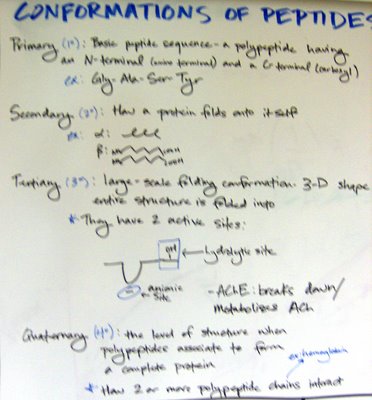 CONFORMATIONS OF PEPTIDES
Primary (1°): Basic peptide sequence - a polypeptide having
an N-terminal (amino terminal) and a C-terminal (carboxyl)
ex: Gly-Ala-Ser-Tyr
Secondary (2°): How a protein folds onto itself
ex: α:
β:
Tertiary (3°): large-scale folding conformation. 3-D shape
entire structure is folded into
* They have 2 active sites:
OH
hydrolytic site
anionic
site
- AChE: breaks down/
metabolizes ACh
Quaternary (4°): the level of structure when
polypeptides associate to form
a complete protein
ex: hemoglobin
* How 2 or more polypeptide chains interact